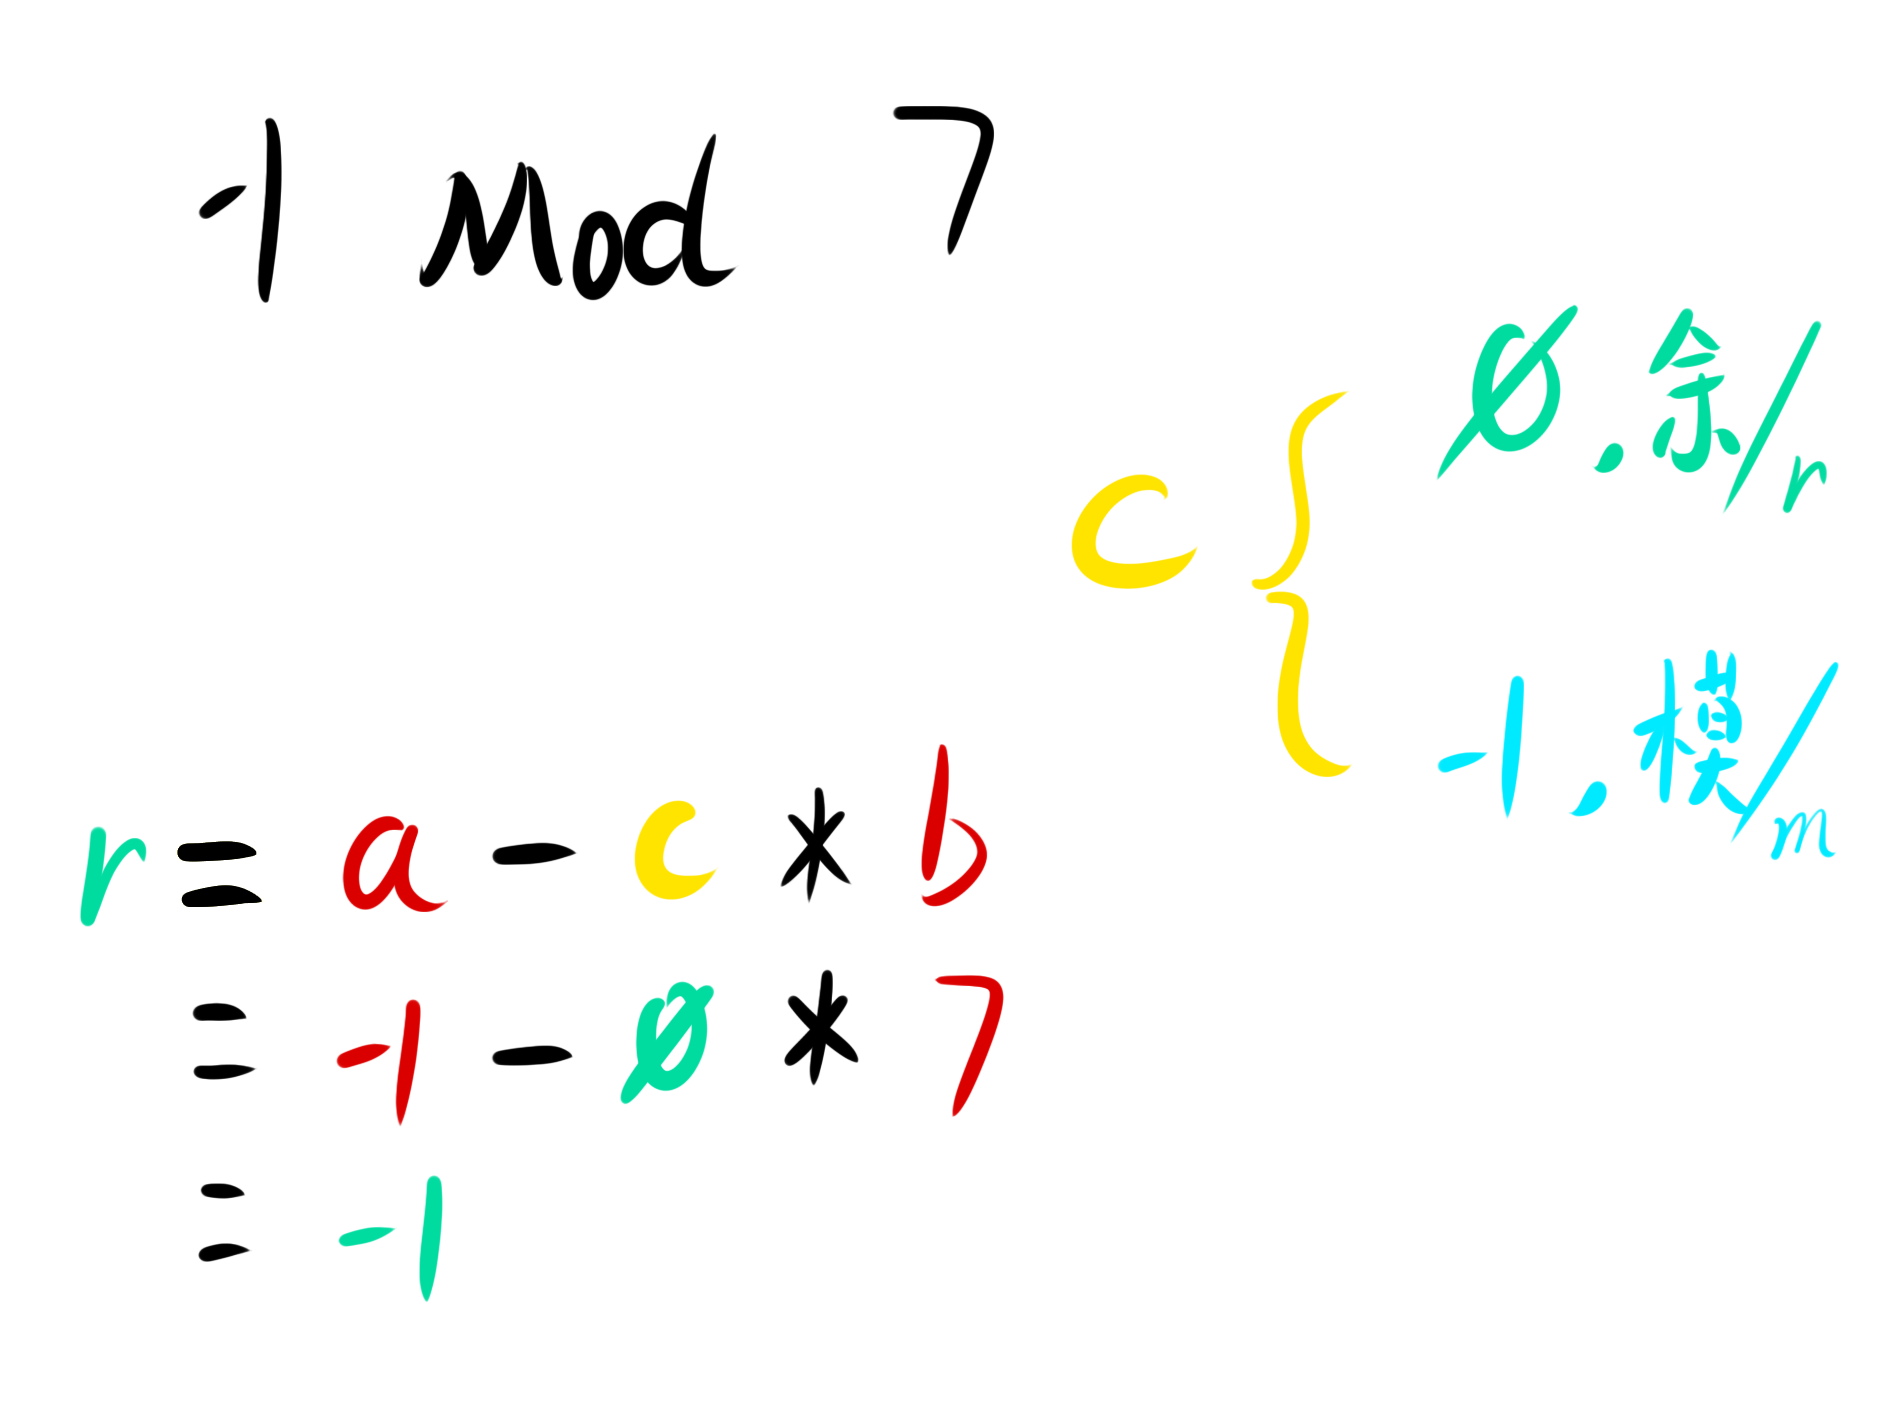 -1 Mod 7
c { 0, 余/r
-1, 模/m
r = a - c * b
= -1 - 0 * 7
= -1